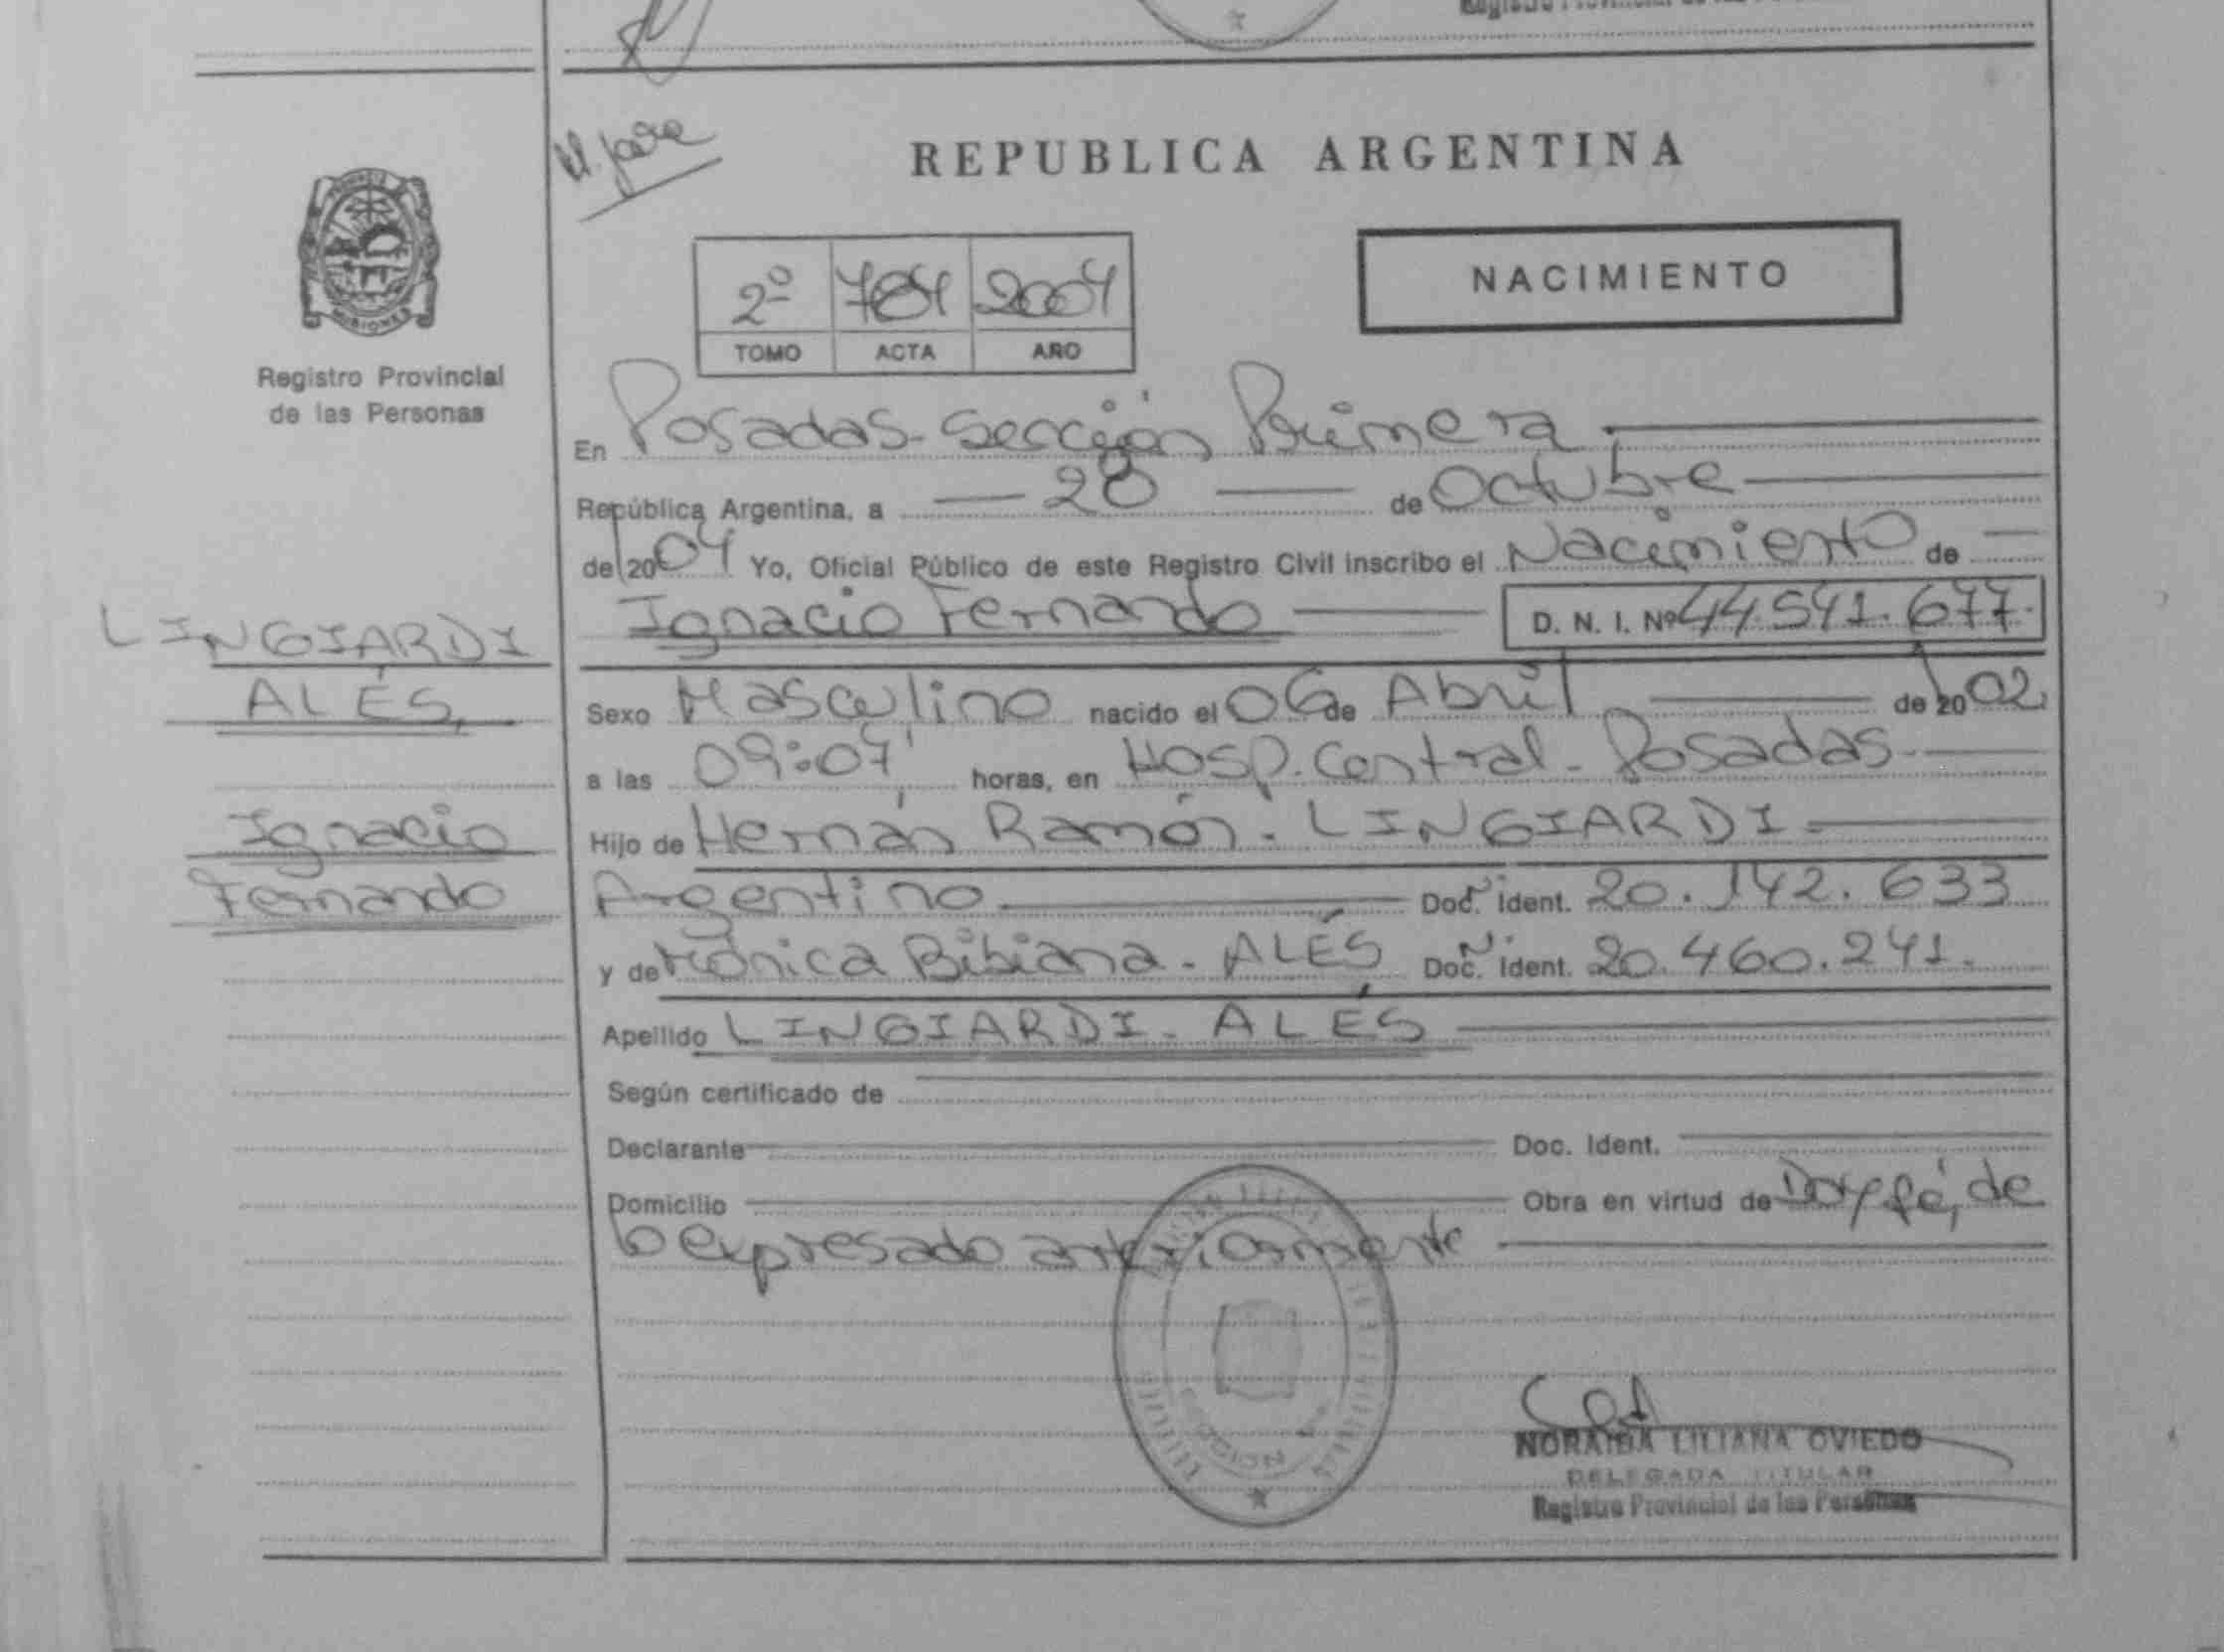 REPUBLICA ARGENTINA
2º 784 2004
TOMO ACTA AÑO
NACIMIENTO
MISIONES
Registro Provincial
de las Personas
En Posadas - Sección Primera
República Argentina, a 28 de Octubre
de 2004 Yo, Oficial Público de este Registro Civil inscribo el Nacimiento de
Ignacio Fernando D. N. I. Nº 44.541.677.
LINGIARDI
ALÉS,
Ignacio
Fernando
Sexo Masculino nacido el 06 de Abril de 2002
a las 09:07' horas, en Hosp. Central - Posadas
Hijo de Hernán Ramón - LINGIARDI
Argentino Doc. Ident. 20.142.633
y de Mónica Bibiana - ALÉS Doc. Ident. 20.460.241.
Apellido LINGIARDI - ALÉS
Según certificado de
Declarante Doc. Ident.
Domicilio Obra en virtud de Doy fé, de
lo expresado anteriormente
NORAIDA LILIANA OVIEDO
DELEGADA TITULAR
Registro Provincial de las Personas